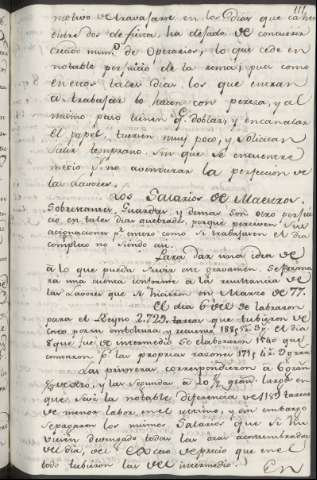 111
motivo de travajarse en los Dias que caen
entre dos de fiesta, ha dejado de concurrir
crecido num.º de Operarios, lo que cede en
notable perjuicio de la renta; pues como
en estos tales dias los que entran
à trabajar lo hacen con pereza, y al
mismo paso tienen q.e doblar, y encanalar
el papel, tuercen muy poco, y solicitan
salir temprano sin que se encuentre
medio, p.ª asegurar la perfeccion de
las Lavores.
Los Salarios de Maestros,
Sobrestantes, Guardas, y demas son otro perjui
cio, en tales dias quebrados, porque perciven sus
asignaciones p.r entero como si trabajasen el dia
completo no siendo asi.
Para dar una idea de
à lo que pueda servir este gravamen se forma
ra una cuenta conforme à la resultancia de
las Lavores que se hicieron en Marzo de 77.
El dia 6 de el se labraron
para el Reyno 2.729. tareas que tubieron de
costo por su emboltura y recuento 1885 y el dia
8 que fue de intermedio se elaboraron 1540 que
costaron p.r las propias razones
Las primeras correspondieron à 6 gran.s
y las segundas à 10 gran. largos en
que sale la notable diferencia de 1189 tareas
de menos labor en el ultimo, y sin embargo
se pagaron los mismos Salarios que si hu
viesen devengado todas las oras acostumbradas
del dia, del exceso de precio que en el
todo tubieron las del intermedio.
En